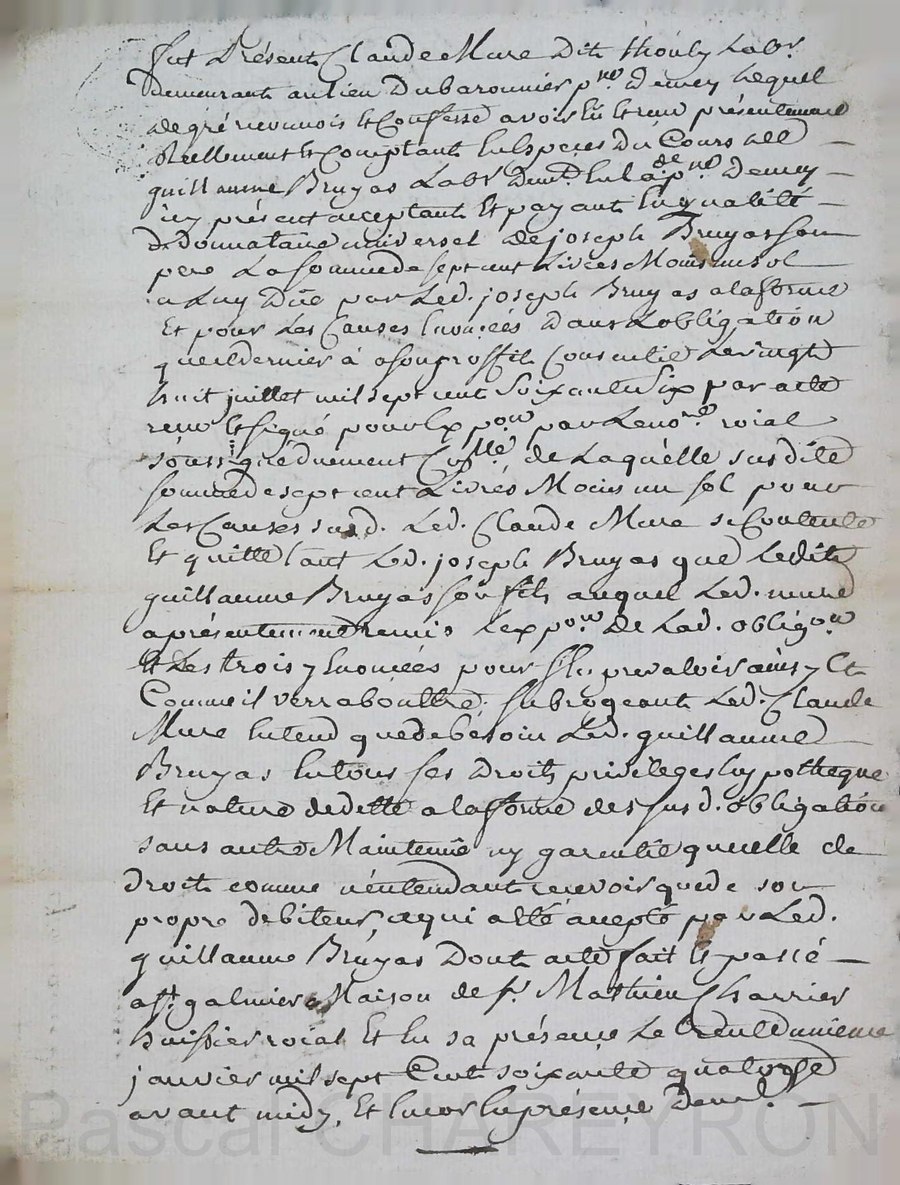 fut Présent Claude Mure dit thoüly Labr.
demeurant au lieu du baronnier p.sse devey Lequel
de gré reconnois et Confesse avoir Eu et receu présentement
Réellement et Comptant En Especes du Cours de
guillaume Bruyas Labr. dem.t En lad. p.sse devey
icy présent acceptant Et payant En qualité
de donnataire universel de joseph Bruyas son
pere La somme de sept cent Livres Moins un sol
a Luy Düe par Led. joseph Bruyas a la forme
Et pour Les Causes Enoncées dans L'obligation
que ce dernier à a son proffit Consentie Le vingt
huit juillet mil sept cent soixante six par acte
receu et signé pour Exp.on par Le no.re roial
soussigné duement C.llé de Laquelle susdite
somme de sept cent Livres Moins un sol pour
Les Causes susd. Led. Claude Mure se Contente
Et quitte tant Led. joseph Bruyas que Ledit
guillaume Bruyas son fils auquel Led. mure
a présentement remis L'exp.on de Lad. oblig.on
et Les trois y Enoncées pour s'En prevaloir ainsy Et
Comme il verra bon Etre. subrogeant Led. Claude
Mure En tend que de besoin Led. guillaume
Bruyas En tous ses droits privileges hypotheque
Et nature de dette a la forme des susd. obligation
sans autre Maintenüe ny garentie que celle de
droit comme n'entendant recevoir que de son
propre debiteur, a qui a Eté accepté par Led.
guillaume Bruyas Dont acte fait et passé
a s.t galmier Maison de s.r Mathieu Charrier
huissier roial Et En sa présence Le trente unieme
janvier mil sept Cent soixante quatorze
avant midy, Et Encor En présence
Pascal CHAREYRON